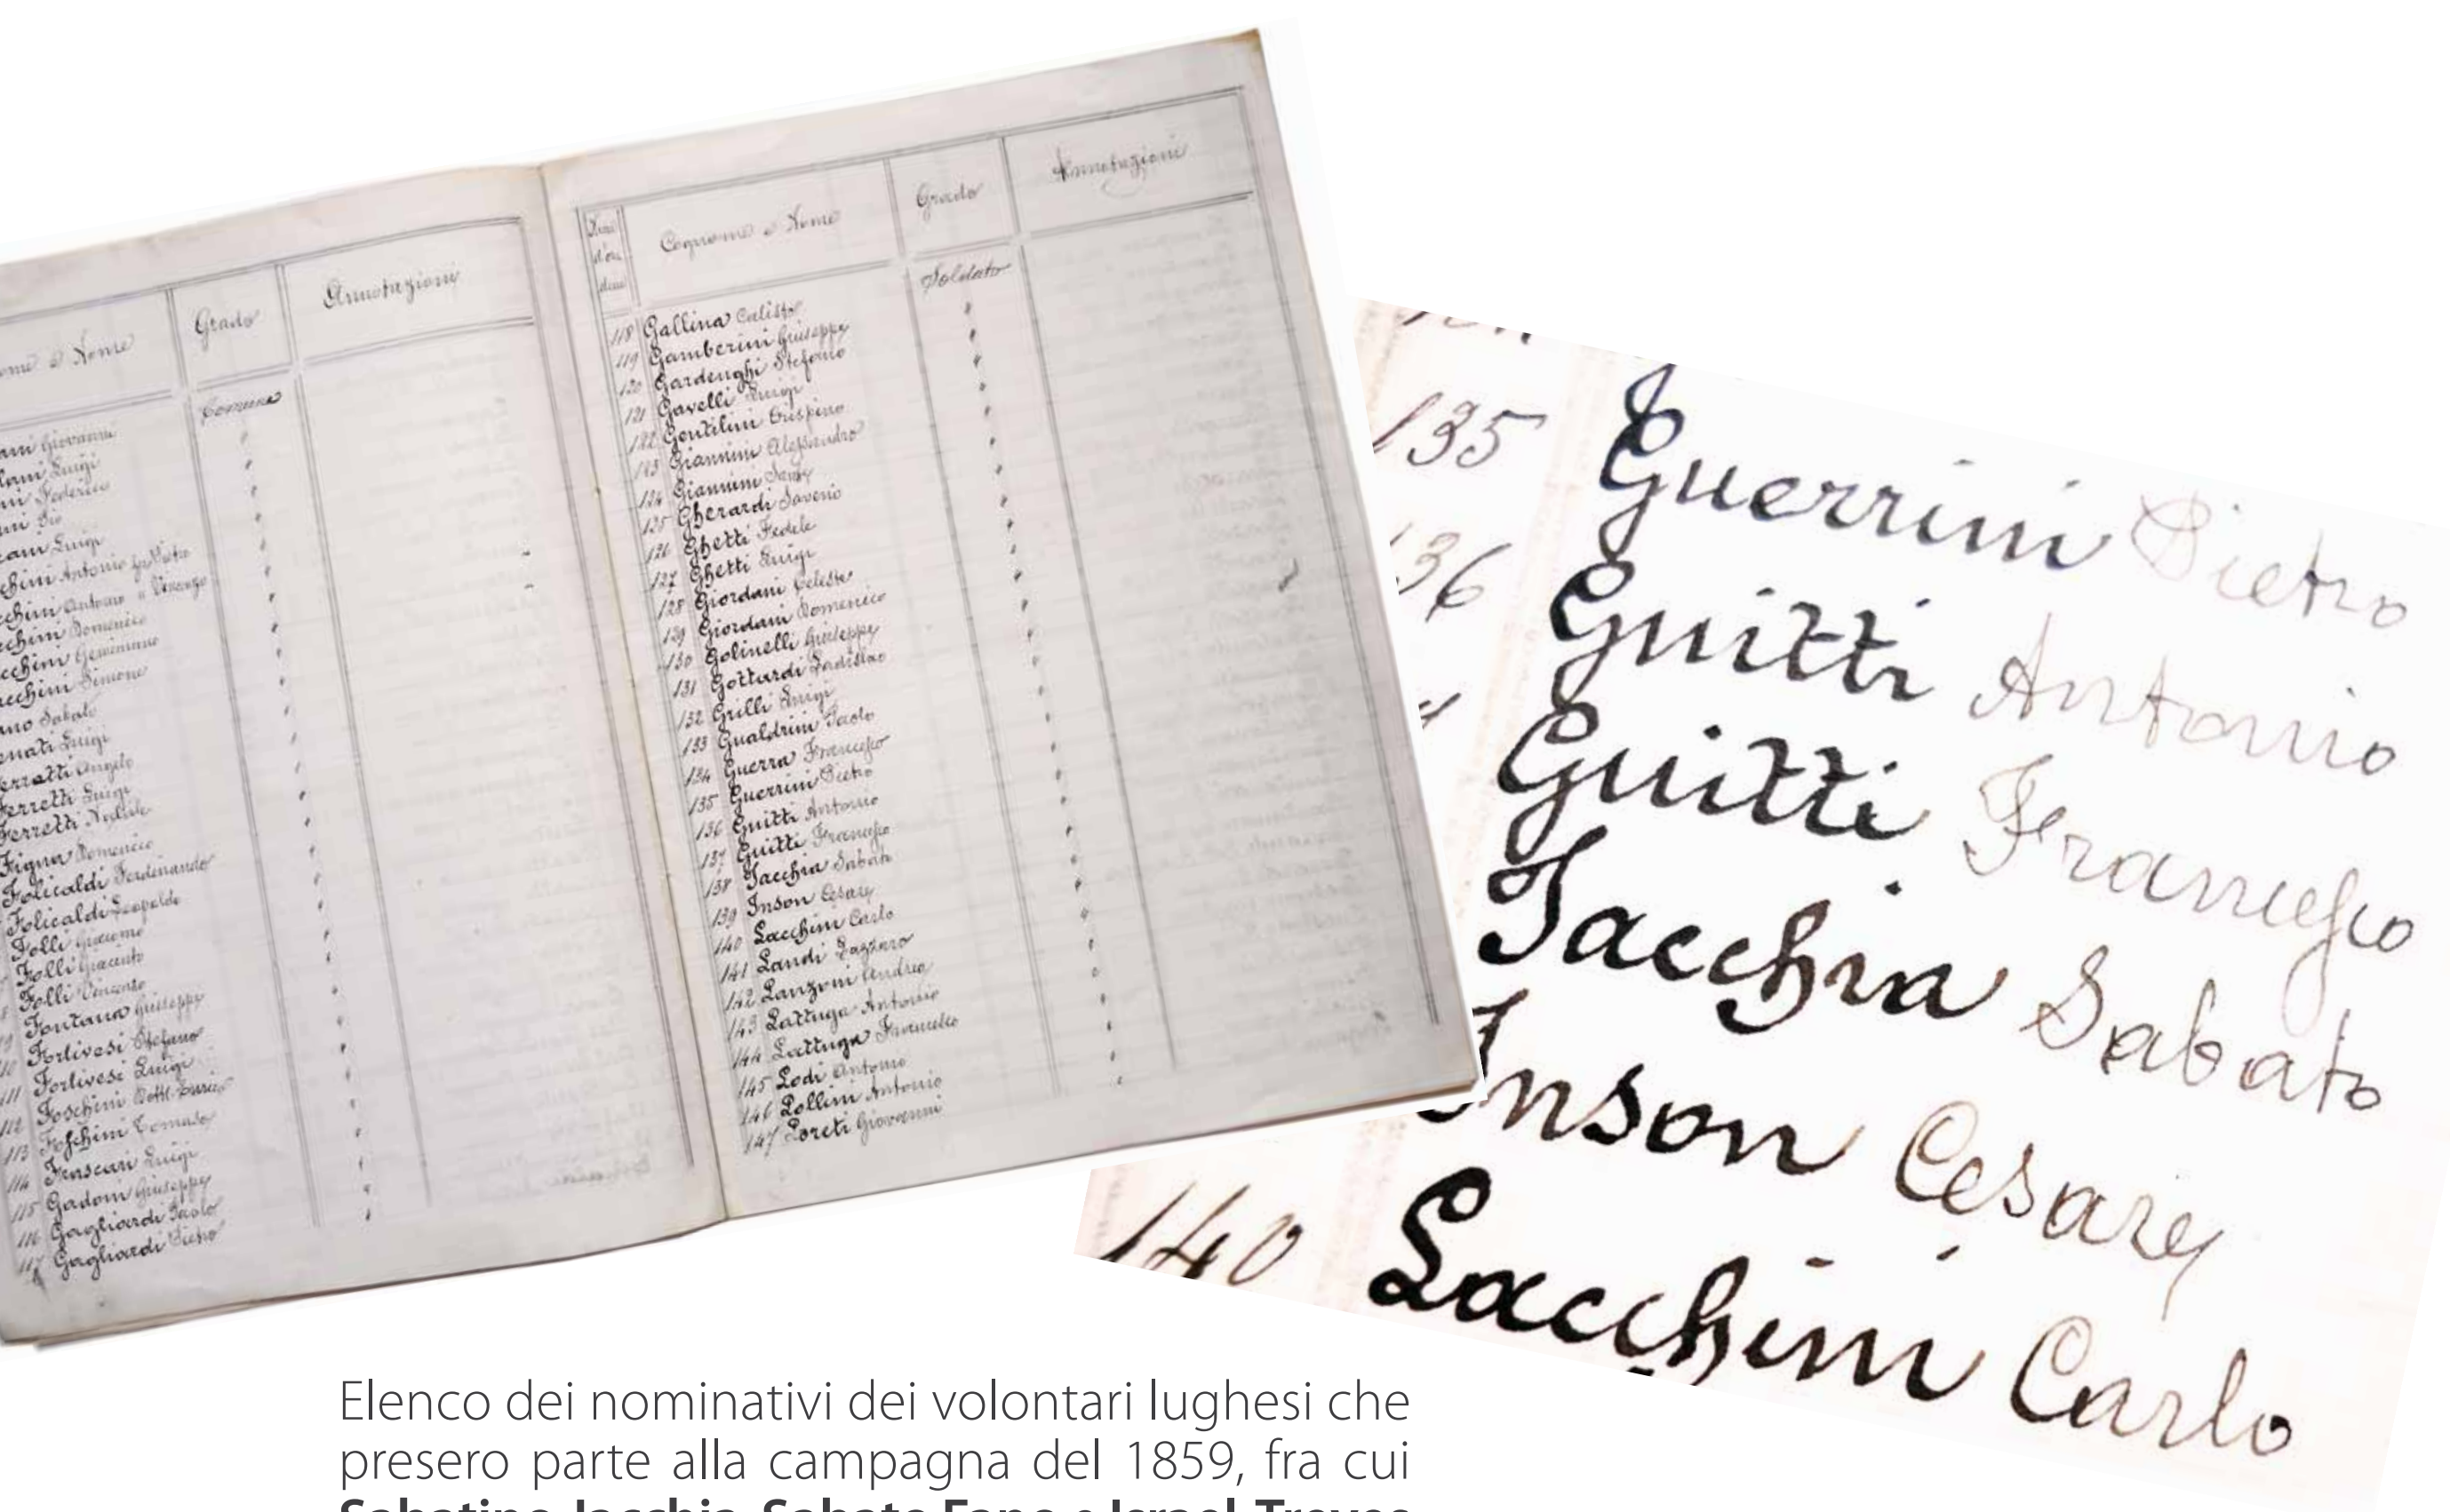 Grado
Annotazioni
Comune
Giovanni
Luigi
Federico
Luigi
Antonio fu Pietro
Antonio Vincenzo
Domenico
Simone
Sabato
Luigi
Angelo
Ferretti Luigi
Ferretti
Figna Domenico
Folicaldi Ferdinando
Folicaldi Leopoldo
Folli Giacomo
Folli Giacinto
Folli Vincenzo
Fontana Giuseppe
Forlivesi Stefano
111 Forlivesi Luigi
112 Foschini
113 Foschini Tomaso
114 Luigi
115 Gadoni Giuseppe
116 Gagliardi Paolo
117 Gagliardi Pietro
Cognome e Nome
Grado
Annotazioni
Soldato
118 Gallina Calisto
119 Gamberini Giuseppe
120 Gardenghi Stefano
121 Gavelli Luigi
122 Gentilini Crispino
123 Giannini Alessandro
124 Giannini
125 Gherardi Saverio
126 Ghetti Fedele
127 Ghetti Luigi
128 Giordani Celeste
129 Giordani Domenico
130 Golinelli Giuseppe
131 Gottardi Ladislao
132 Grilli Luigi
133 Gualdrini Paolo
134 Guerra Francesco
135 Guerrini Pietro
136 Guitti Antonio
137 Guitti Francesco
138 Jacchia Sabato
139 Inson Cesare
140 Lacchini Carlo
141 Landi Lazzaro
142 Lanzoni Andrea
143 Lattuga Antonio
144 Lattuga Francesco
145 Lodi Antonio
146 Lollini Antonio
147 Loreti Giovanni
135 Guerrini Pietro
136 Guitti Antonio
Guitti Francesco
Jacchia Sabato
Inson Cesare
140 Lacchini Carlo
Elenco dei nominativi dei volontari lughesi che
presero parte alla campagna del 1859, fra cui
Sabatino Jacchia, Sabato Fano e Israel Treves